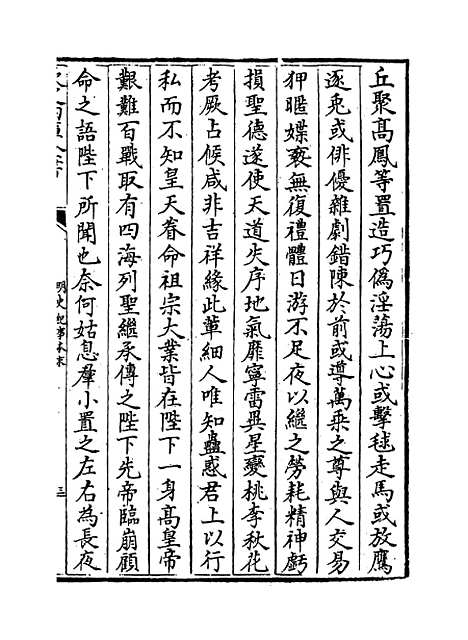 丘聚髙鳳等置造巧偽淫蕩上心或擊毬走馬或放鷹
逐兎或俳優雜劇錯陳於前或導萬乗之尊與人交易
狎暱媟䙝無復禮體日游不足夜以繼之勞耗精神虧
損聖德遂使天道失序地氣靡寧雷異星變桃李秋花
考厥占候咸非吉祥緣此軰細人唯知蠱惑君上以行
私而不知皇天眷命祖宗大業皆在陛下一身髙皇帝
艱難百戰取有四海列聖繼承傳之陛下先帝臨崩顧
命之語陛下所聞也奈何姑息羣小置之左右為長夜
明史紀事本末
三